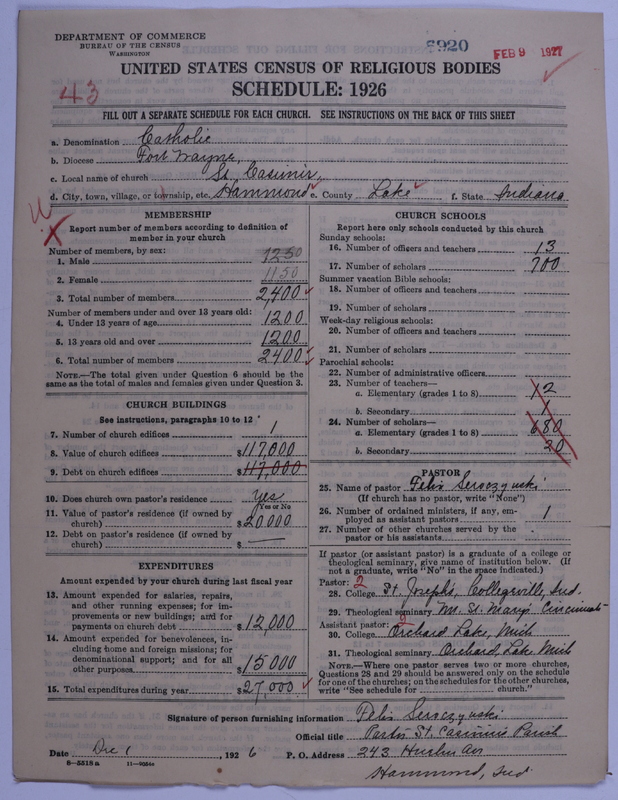 DEPARTMENT OF COMMERCE
BUREAU OF THE CENSUS
WASHINGTON
5920
FEB 9 1927
UNITED STATES CENSUS OF RELIGIOUS BODIES
43
SCHEDULE: 1926
FILL OUT A SEPARATE SCHEDULE FOR EACH CHURCH. SEE INSTRUCTIONS ON THE BACK OF THIS SHEET
a. Denomination Catholic
b. Diocese Fort Wayne,
c. Local name of church St. Casimir,
d. City, town, village, or township, etc. Hammond e. County Lake f. State Indiana
MEMBERSHIP
Report number of members according to definition of
member in your church
Number of members, by sex:
1. Male 1250
2. Female 1150
3. Total number of members 2,400
Number of members under and over 13 years old:
4. Under 13 years of age 1200
5. 13 years old and over 1200
6. Total number of members 2400
NOTE.—The total given under Question 6 should be
same as the total of males and females given under Question 3.
CHURCH BUILDINGS
See instructions, paragraphs 10 to 12
7. Number of church edifices 1
8. Value of church edifices $117,000
9. Debt on church edifices $117,000
10. Does church own pastor's residence Yes
Yes or No
11. Value of pastor's residence (if owned by
church) $20,000
12. Debt on pastor's residence (if owned by
church) $ —
EXPENDITURES
Amount expended by your church during last fiscal year
13. Amount expended for salaries, repairs,
and other running expenses; for im-
provements or new buildings; and for
payments on church debt $12,000
14. Amount expended for benevolences, in-
cluding home and foreign missions; for
denominational support; and for all
other purposes $15000
15. Total expenditures during year $27,000
CHURCH SCHOOLS
Report here only schools conducted by this church
Sunday schools:
16. Number of officers and teachers 13
17. Number of scholars 700
Summer vacation Bible schools:
18. Number of officers and teachers
19. Number of scholars
Week-day religious schools:
20. Number of officers and teachers
21. Number of scholars
Parochial schools:
22. Number of administrative officers
23. Number of teachers—
a. Elementary (grades 1 to 8) 12
b. Secondary 1
24. Number of scholars—
a. Elementary (grades 1 to 8) 680
b. Secondary 20
PASTOR
25. Name of pastor Felix Seroczynski
(If church has no pastor, write "None")
26. Number of ordained ministers, if any, em-
ployed as assistant pastors 1
27. Number of other churches served by the
pastor or his assistants
If pastor (or assistant pastor) is a graduate of a college or
theological seminary, give name of institution below. (If
not a graduate, write "No" in the space indicated.)
Pastor: 2
28. College St. Joseph's, Collegeville, Ind.
29. Theological seminary Mt. St. Mary's Cincinnati
Assistant pastor: 2
30. College Orchard Lake, Mich
31. Theological seminary Orchard Lake Mich
NOTE.—Where one pastor serves two or more churches,
Questions 28 and 29 should be answered only on the schedule
for one of the churches; on the schedules for the other churches,
write "See schedule for church."
Signature of person furnishing information Felix Seroczynski
Official title Pastor St. Casimirs Parish
Date Dec 1, 1926 P. O. Address 243
8—5518 a 11—9064a
Hammond, Ind.